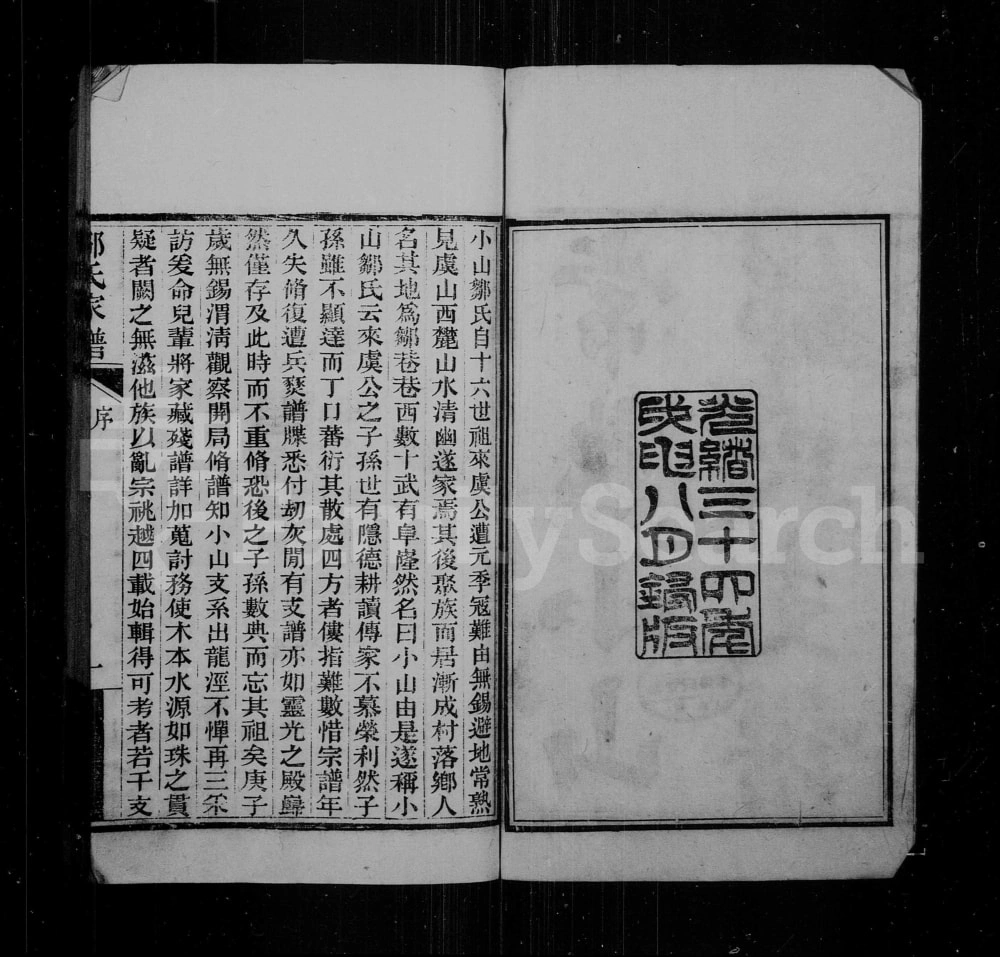 光緒三十四年
戊申八月鋟版
小山鄒氏自十六世祖來虞公遭元季冦難由無錫避地常熟
見虞山西麓山水清幽遂家焉其後聚族而居漸成村落鄉人
名其地爲鄒巷巷西數十武有阜隆然名曰小山由是遂稱小
山鄒氏云來虞公之子孫世有隱德耕讀傳家不慕榮利然子
孫雖不顯達而丁口蕃衍其散處四方者僂指難數惜宗譜年
久失脩復遭兵燹譜牒悉付刧灰閒有支譜亦如靈光之殿巋
然僅存及此時而不重脩恐後之子孫數典而忘其祖矣庚子
歲無錫渭淸觀察開局脩譜知小山支系出龍涇不憚再三采
訪爰命兒輩將家藏殘譜詳加蒐討務使木本水源如珠之貫
疑者闕之無滋他族以亂宗祧越四載始輯得可考者若干支
鄒氏家譜
序
一
FamilySearch